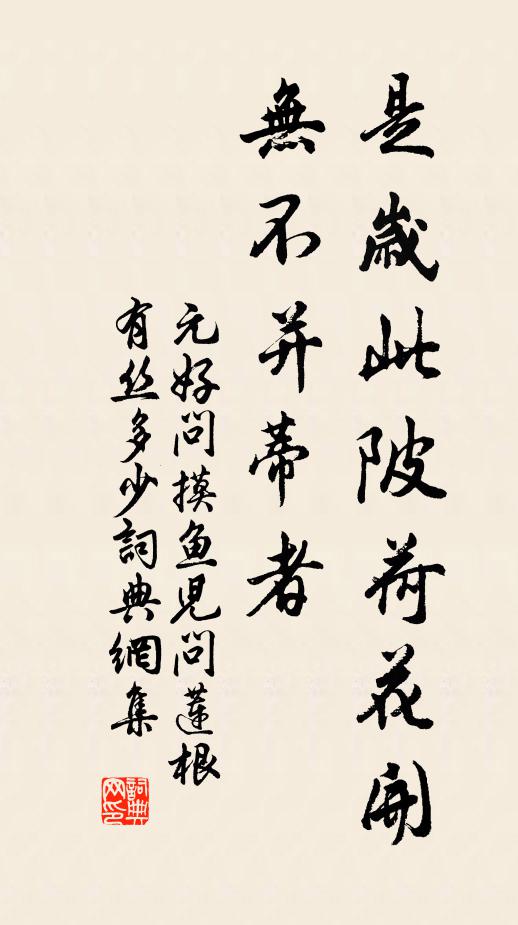 是歲此陂荷花開
無不并蒂者
元好問摸魚児問蓮根
有丝多少詞典網集
詞典
网印